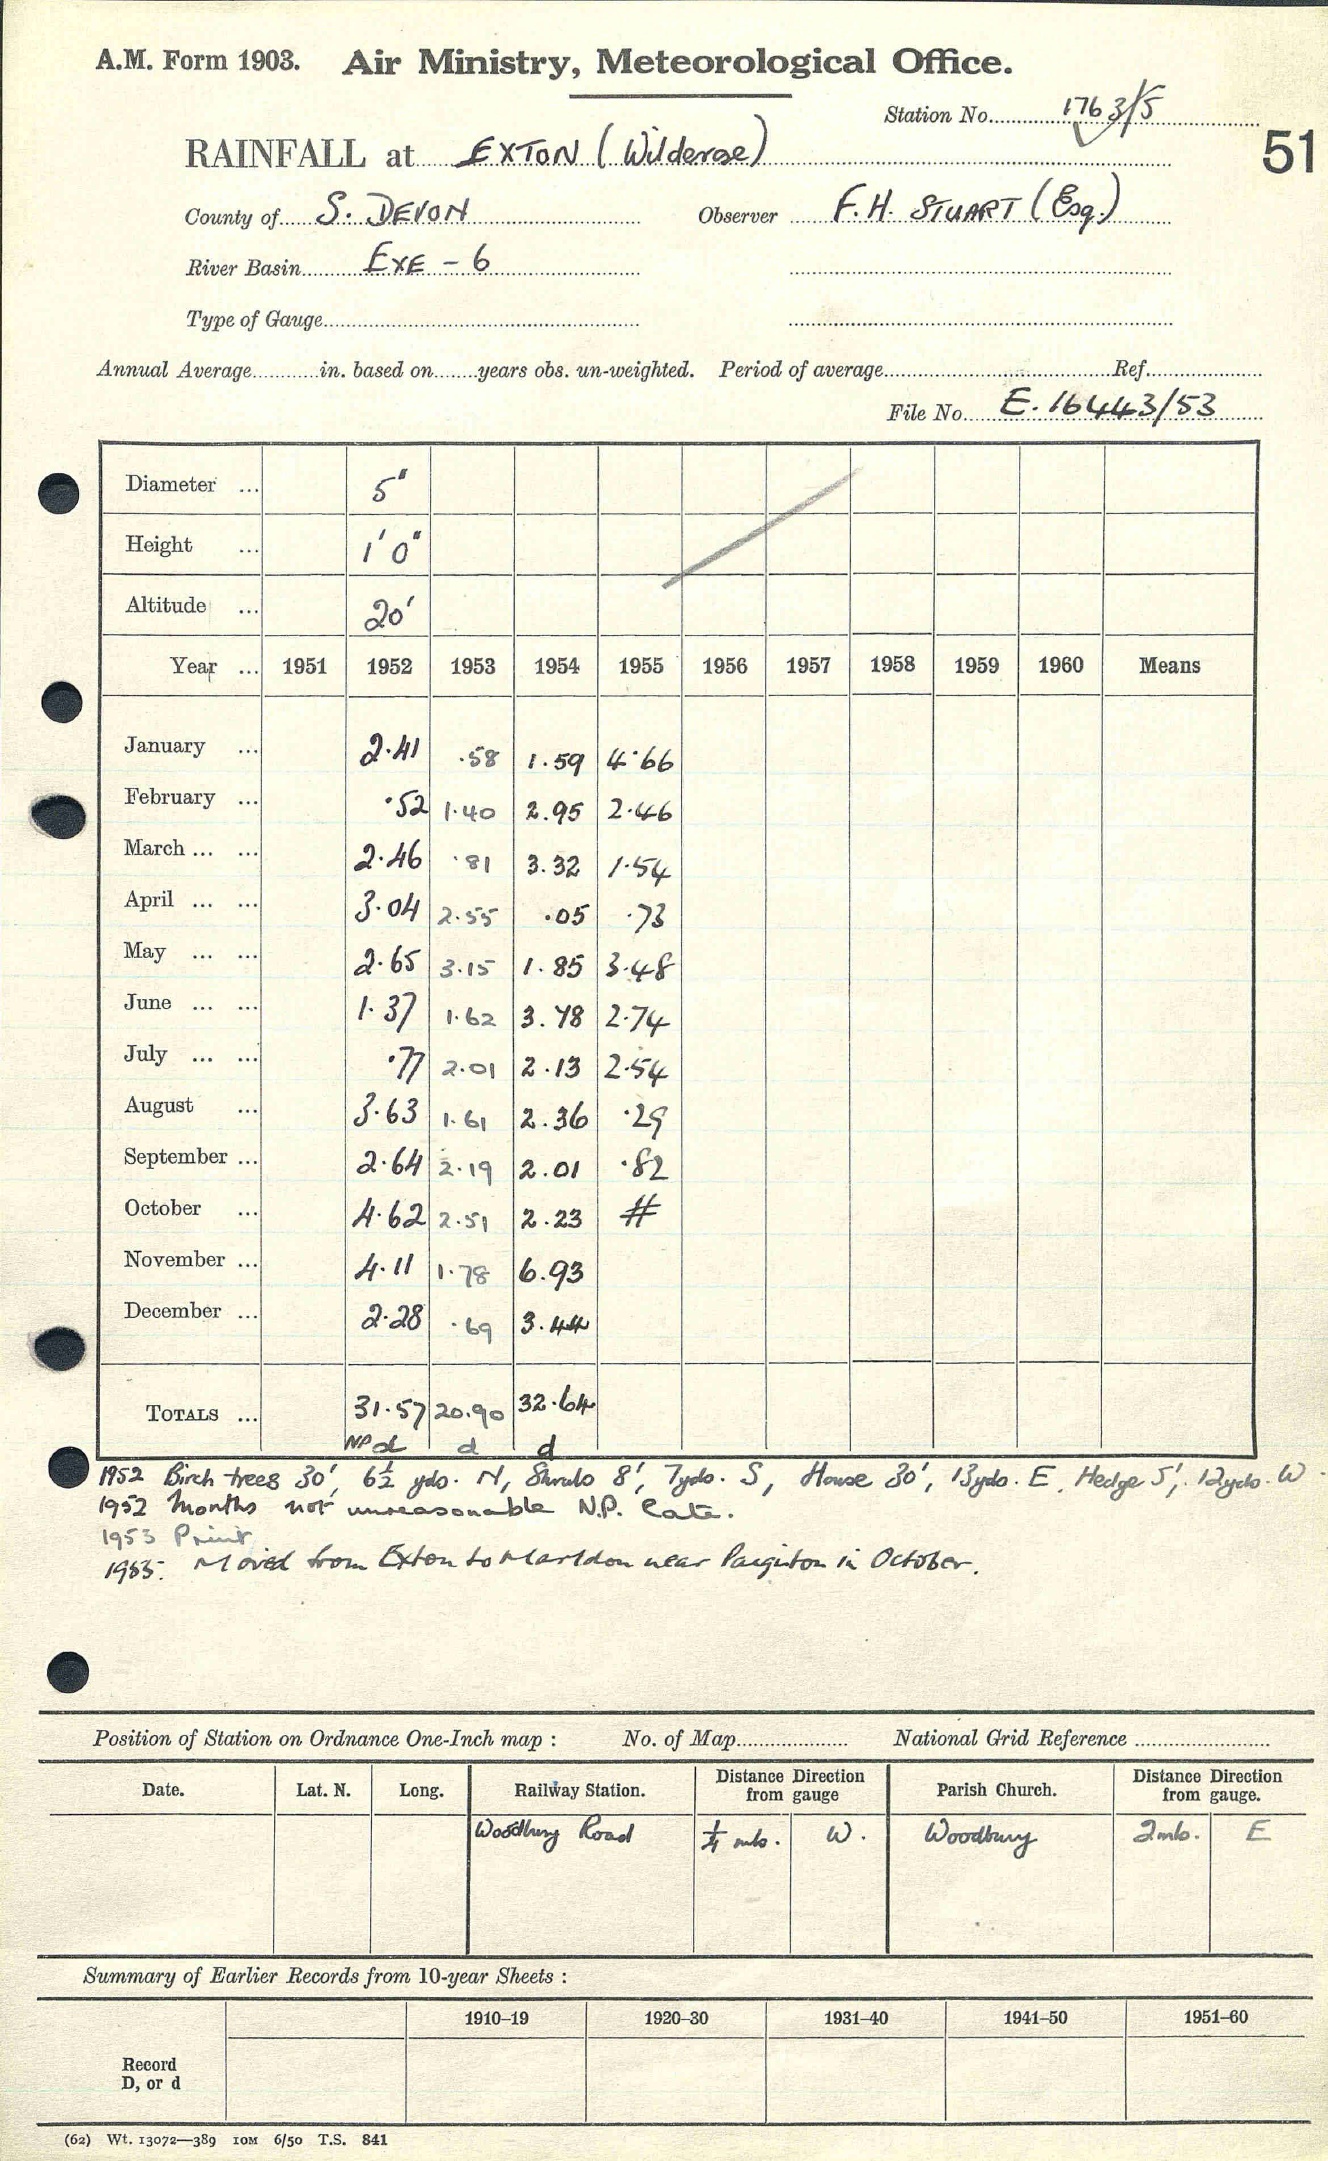 A.M. Form 1903. Air Ministry, Meteorological Office.
Station No. 1763/5
51
RAINFALL at EXTON (Wilderose)
County of S. DEVON Observer F.H. STUART (Esq.)
River Basin EXE - 6
Type of Gauge
Annual Average in. based on years obs. un-weighted. Period of average Ref.
File No. E. 16443/53
Diameter ... 5"
Height ... 1' 0"
Altitude ... 20'
Year ... 1951 1952 1953 1954 1955 1956 1957 1958 1959 1960 Means
January ... 2.41 .58 1.59 4.66
February ... .52 1.40 2.95 2.46
March ... ... 2.46 .81 3.32 1.54
April ... ... 3.04 2.55 .05 .73
May ... ... 2.65 3.15 1.85 3.48
June ... ... 1.37 1.62 3.78 2.74
July ... ... .77 2.01 2.13 2.54
August ... 3.63 1.61 2.36 .29
September ... 2.64 2.19 2.01 .82
October ... 4.62 2.51 2.23 #
November ... 4.11 1.78 6.93
December ... 2.28 .69 3.44
TOTALS ... 31.57 20.90 32.64
NP d d d
1952 Birch trees 30', 6½ yds. N, Shrubs 8', 7yds. S, House 30', 13yds. E, Hedge 5', 12yds. W.
1952 Months not unreasonable N.P. Rate.
1953 Print
1955. Moved from Exton to Marldon near Paignton in October.
Position of Station on Ordnance One-Inch map : No. of Map National Grid Reference
Date. Lat. N. Long. Railway Station. Distance Direction from gauge Parish Church. Distance Direction from gauge.
Woodbury Road ¼ mls. W. Woodbury 2mls. E
Summary of Earlier Records from 10-year Sheets :
1910–19 1920–30 1931–40 1941–50 1951–60
Record
D, or d
(62) Wt. 13072—389 10M 6/50 T.S. 841